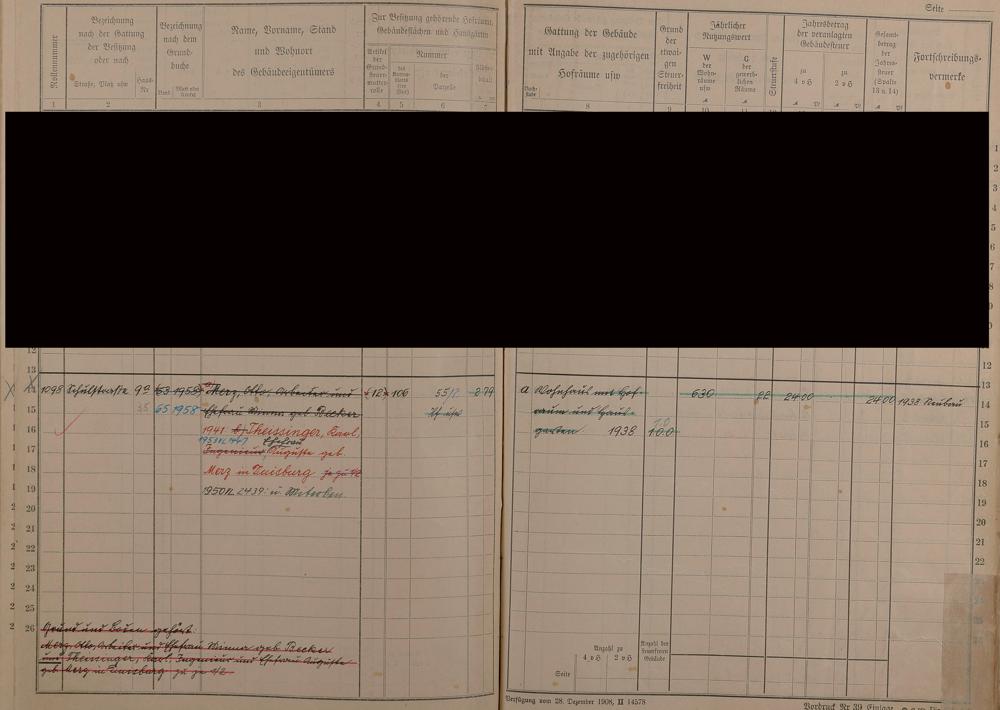 Seite
Rollennummer
Bezeichnung nach der Gattung der Besitzung oder nach
Straße, Platz usw
Haus-Nr
Bezeichnung nach dem Grund-buche
Band
Blatt oder
Name, Vorname, Stand
und Wohnort
des Gebäudeeigentümers
Zur Besitzung gehörende Hofräume,
Gebäudeflächen und Hausgärten
Nummer
der
Parzelle
1 2 3 4 5 6 7
Gattung der Gebäude
mit Angabe der zugehörigen
Hofräume usw
Buch-stabe
Grund der etwai-gen Steuer-freiheit
Jährlicher Nutzungswert
W der Wohn-räume usw
G der gewerb-lichen Räume
Steuerstufe
Jahresbetrag der veranlagten Gebäudesteuer
zu 4 v H
zu 2 v H
Gesamt-betrag der Jahres-steuer (Spalte 13 u. 14)
Fortschreibungs-vermerke
8 9
1
2
3
4
5
6
7
8
9
12 12
13
14 1098 Schulstraße 9a 63 1958 Merz, Otto, Arbeiter und 12 106 55/ 2 79
15 35 65 1958 Ehefrau Minna geb Becker
16 1941 b) Theissinger, Karl,
1950 Ehefrau
17 Ingenieur Auguste geb.
18 Merz in Duisburg je zu 1/2
19 1950 N. 2439: u. Miterben
20
21
22
23
24
25
26
a Wohnhaus mit Hof- 630 22 24 00 24 00 1938 Neubau
raum und Haus-
garten 1938 100
13
14
15
16
17
18
19
20
21
22
Grund und Boden gehört:
Merz, Otto, Arbeiter und Ehefrau Minna geb Becker
und Theissinger, Karl, Ingenieur und Ehefrau Auguste
geb. Merz in Duisburg zu je 1/2
Seite
Anzahl zu
4 v H 2 v H
Anzahl der steuerfreien Gebäude
Verfügung vom 28. Dezember 1908, II 14578
Vordruck Nr 39 Einlage